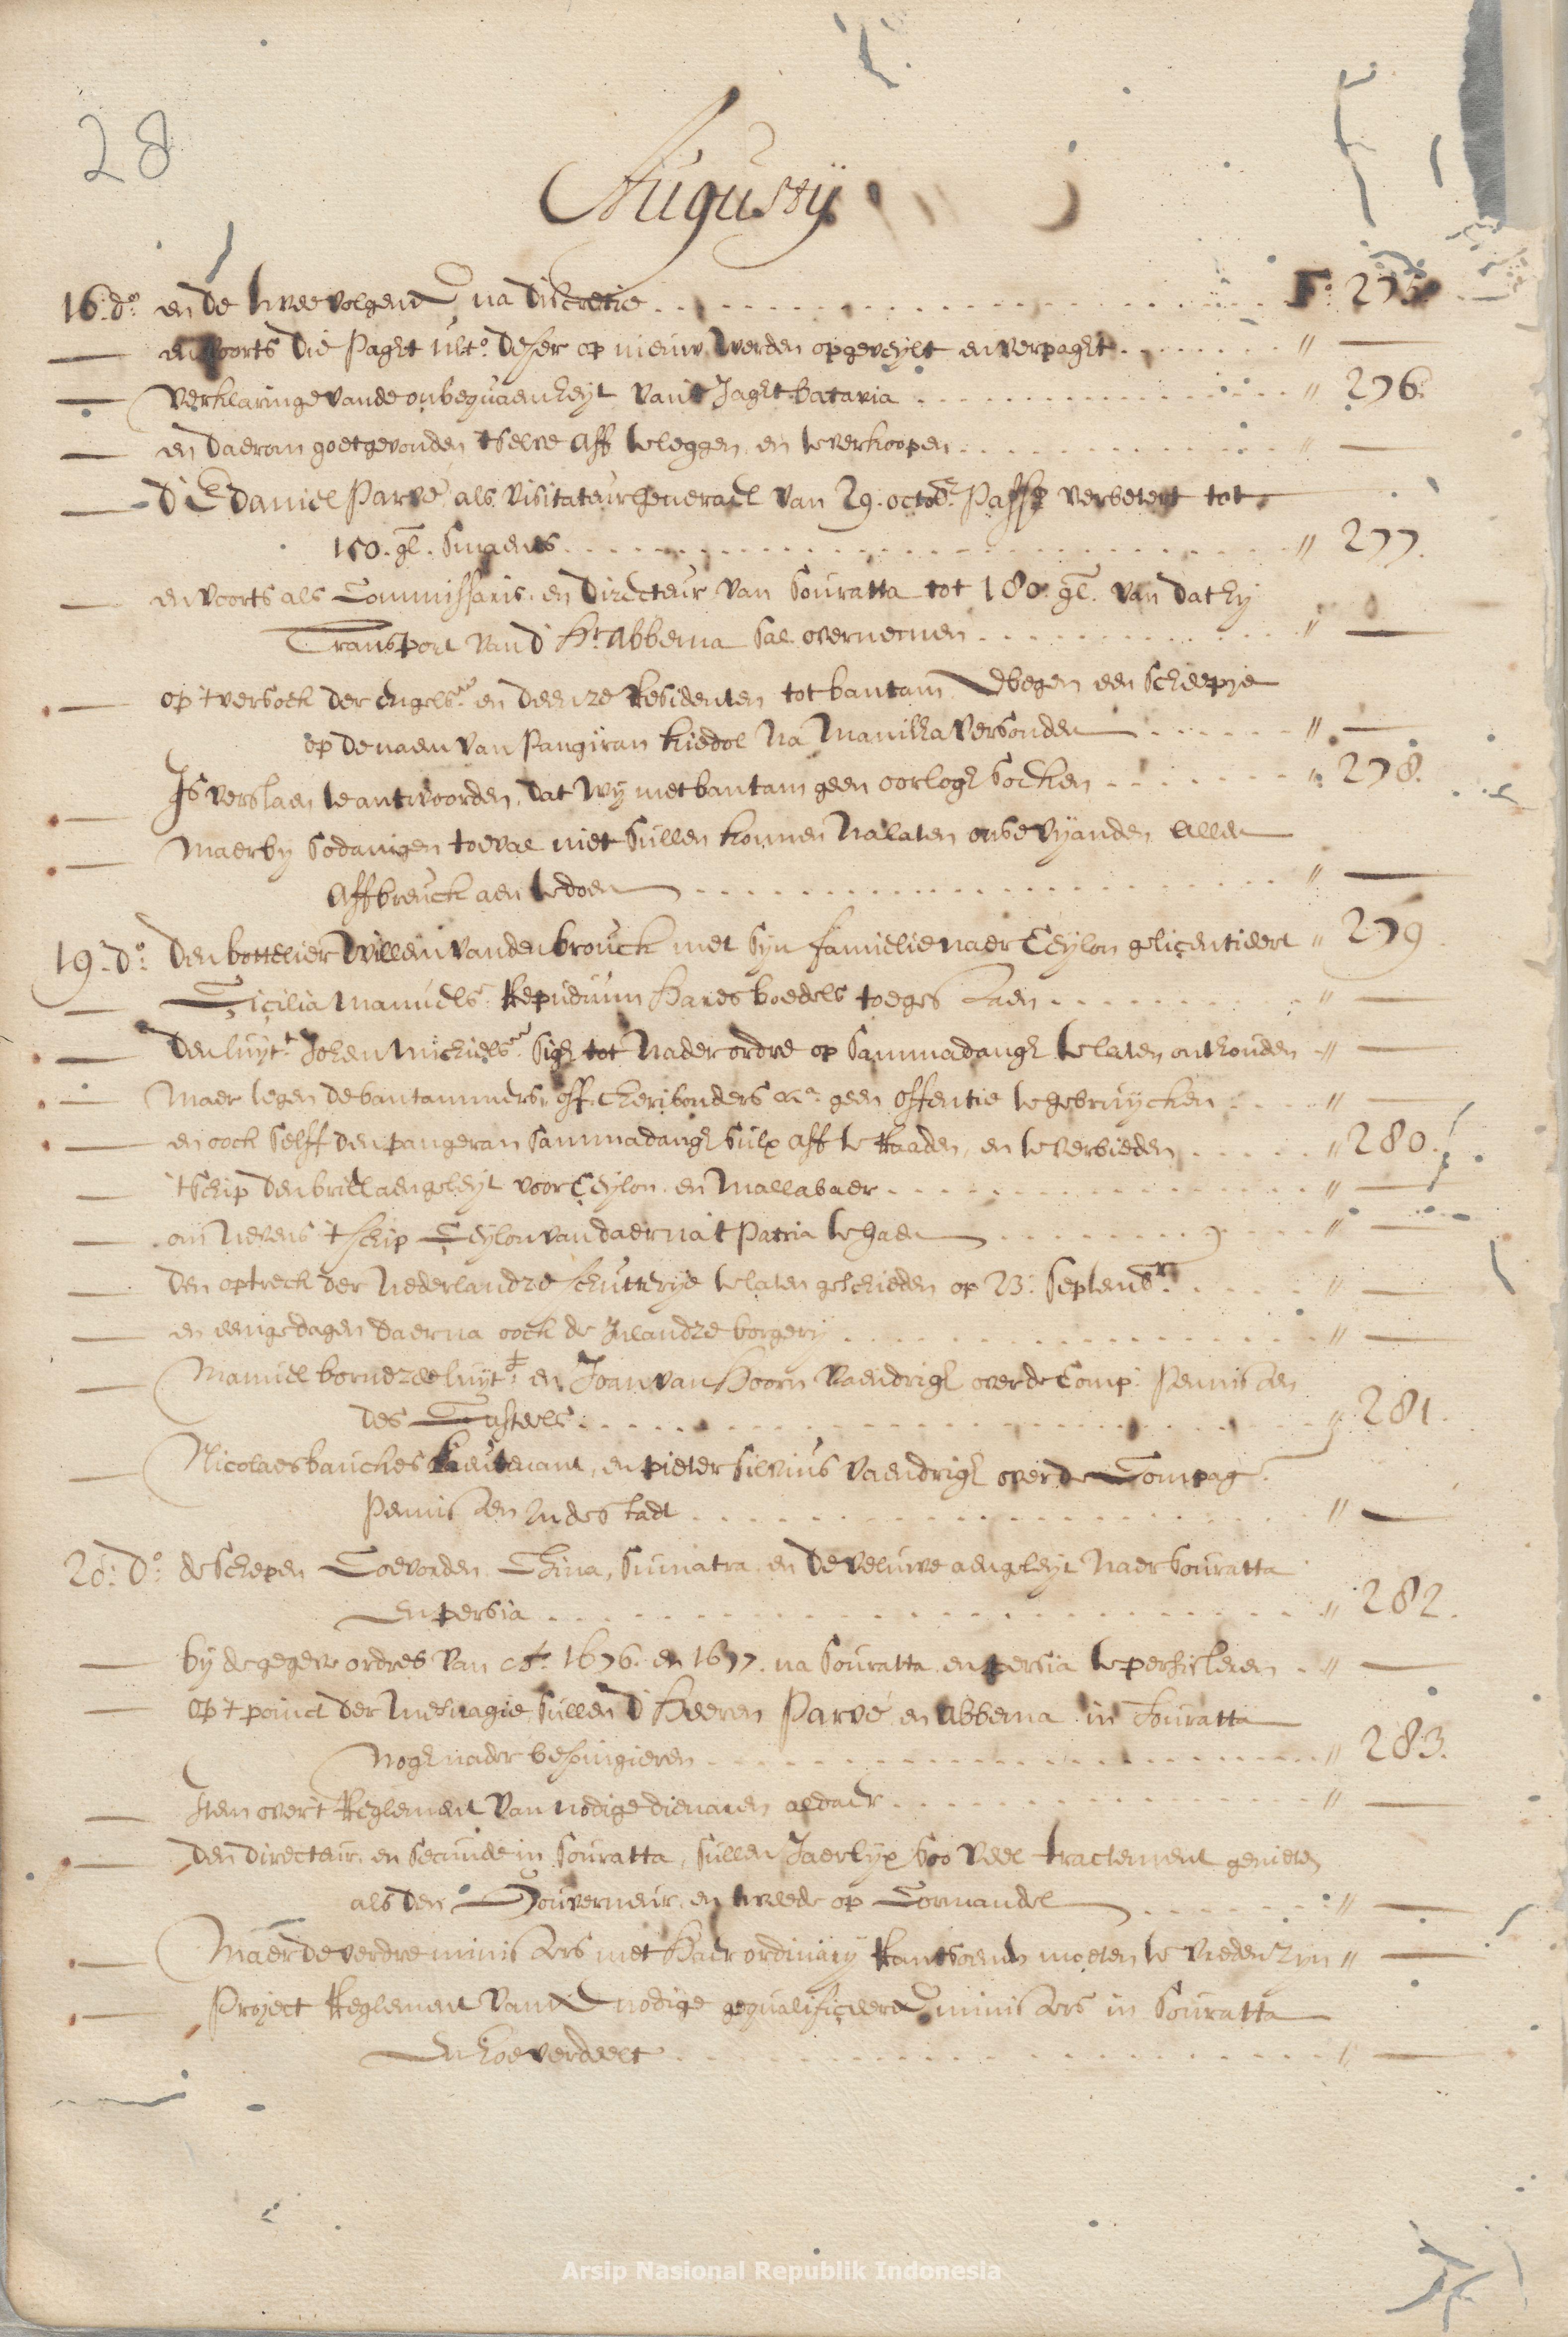 28
Augusty
16: do: en de twee volgende na discretie F: 275
en voorts die Paght ulto. deser op nieuw werden opgeveylt en verpaght "
verklaringe vande onbequaemheyt van 't Jaght batavia " 276
en daerom goetgevonden tselve aff te leggen en te verkoopen "
d' E daniel Parvé als visitateur generael van 29. octobr. Passo verbetert tot
150. gl. smaents " 277.
en voorts als Commissaris en directeur van Souratta tot 180. gl. van dat hy
Transport van d' Hr. Abbema sal overnemen "
op 't versoek der Engelse en deenze Residenten tot bantam wegen een scheepje
op de naem van Pangiran Kiedol na Manilha versonden "
Is verstaen te antwoorden, dat wy met bantam geen oorlogh soeken " 278.
Maer by sodanigen toeval niet sullen konnen nalaten onse vyanden alle
affbreuck aen te doen "
19: do: den bottelier Willem vanden brouck met syn familie naer Ceylon gelicentieert " 279
Cicilia Manuels Repudium Hares boedels toegestaen "
den luyt. Johan Michiels. sigh tot nader ordre op Sammadangh te laten onthouden "
Maer tegen de bantammers off Cheribonders &a. geen offentie te gebruycken "
en oock selff den pangeran Sammadangh sulx aff te Raaden, en te verbieden " 280.
't schip den briel aengeleyt voor Ceylon en Mallabaer "
om nevens 't schip Ceylon van daer na 't Patria te gaen "
den optreck der Nederlandze schutterye te laten geschieden op 23. Septembr. "
en eenige dagen daerna oock de Inlandze borgery "
Manuel bornezee luyt. en Joan van Hoorn vaendrigh over de Comp. Pennisten
des Casteels " 281.
Nicolaes bauches Lieutenant, en pieter Silvius vaendrigh over de Compag.
Pennisten In de stadt "
20: do: de schepen Coevorden China, Sumatra en de veluwe aengeleyt naer Souratta
En persia " 282.
by de gegeve ordres van ao. 1676. en 1677. na Souratta en persia te persisteren "
op 't point der Mesnagie sullen d' Heeren Parvé en Abbema in Souratta
nogh nader besoingieren " 283.
Item over 't Reglement van nodige dienaren aldaer "
den directeur en secunde in Souratta, sullen Jaerlyx soo veel tractement genieten
als den Gouverneur en tweede op Cormandel "
Maer de verdre ministers met haer ordinary Rantsoenen moeten te vreden zyn "
Project Reglement van de nodige gequalificeerde ministers in Souratta
En hoe verdeelt "
Arsip Nasional Republik Indonesia